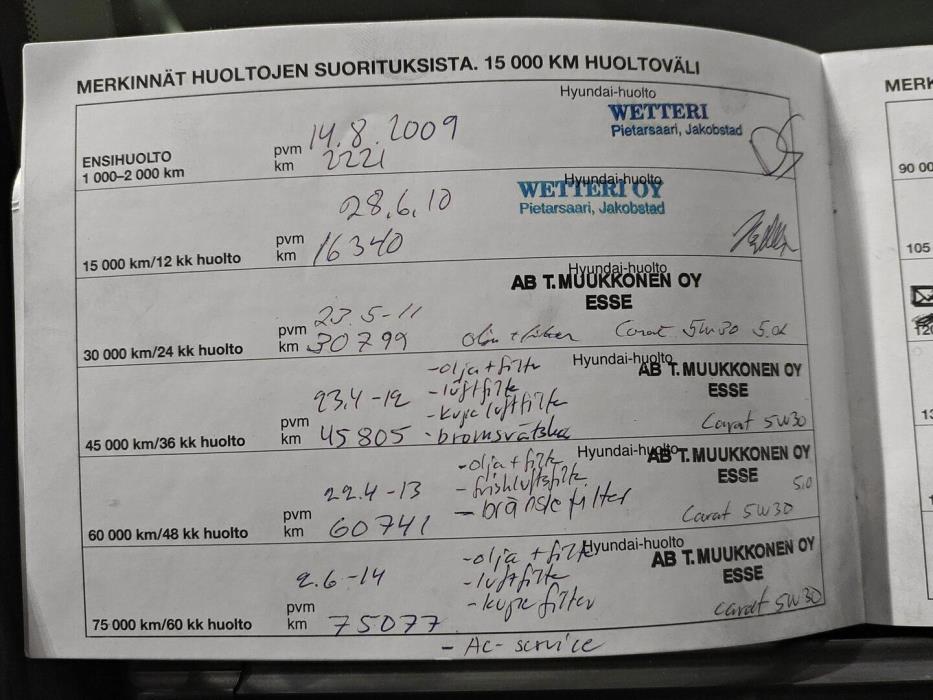 MERKINNÄT HUOLTOJEN SUORITUKSISTA. 15 000 KM HUOLTOVÄLI
Hyundai-huolto
WETTERI
Pietarsaari, Jakobstad
pvm 14.8.2009
ENSIHUOLTO
1 000–2 000 km
km 2221
Hyundai-huolto
WETTERI OY
Pietarsaari, Jakobstad
28.6.10
pvm
15 000 km/12 kk huolto km 16340
Hyundai-huolto
AB T. MUUKKONEN OY
ESSE
pvm 23.5-11
30 000 km/24 kk huolto km 30799 Carat 5W30
-olja + filter
Hyundai-huolto
AB T. MUUKKONEN OY
ESSE
-luftfilte
-kupe luftfilte
pvm 23.4-12
45 000 km/36 kk huolto km 45805 -bromsvätska Carat 5W30
-olja + filte
Hyundai-huolto
AB T. MUUKKONEN OY
ESSE
-friskluftsfilte
5,0
22.4-13
-bränsle filter
pvm
60 000 km/48 kk huolto km 60741 Carat 5W30
-olja + filte
Hyundai-huolto
AB T. MUUKKONEN OY
ESSE
2.6-14
-luftfilte
-kupe filter
pvm
75 000 km/60 kk huolto km 75077 Carat 5W30
- AC-service
MERK
90 00
105
120
13